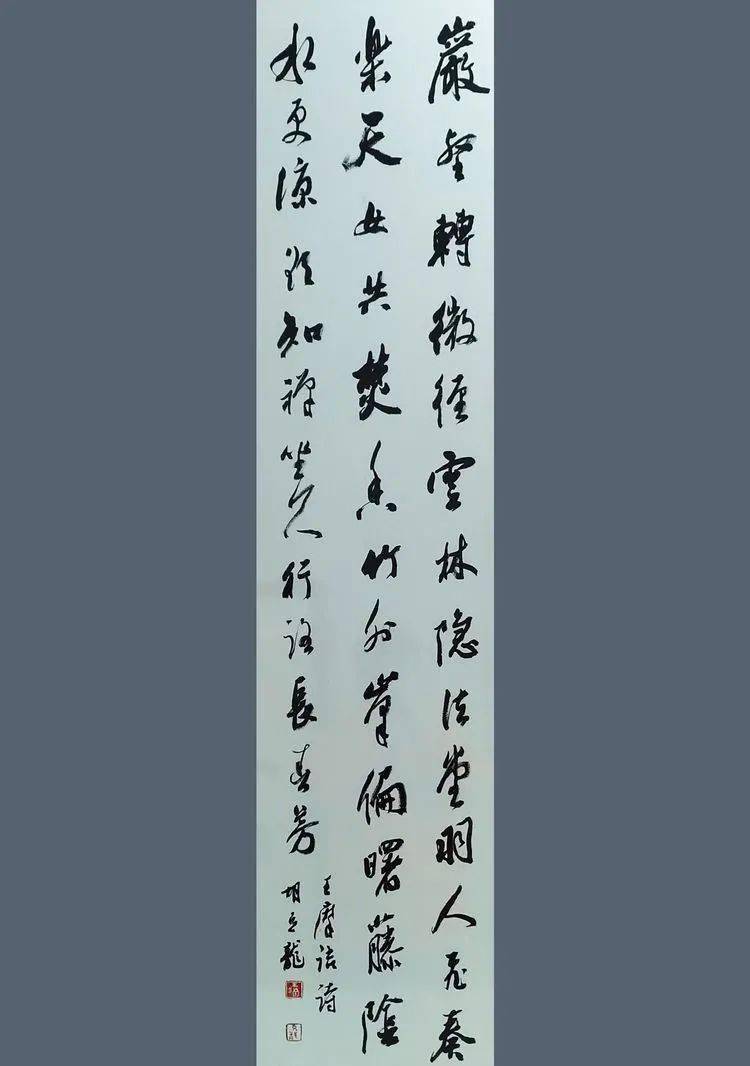 巖壑轉微徑雲林隐法堂羽人飛奏
楽天女共焚香竹外峯偏曙藤陰
水更涼欲知禪坐久行路長春芳
王摩詰詩
胡立龍